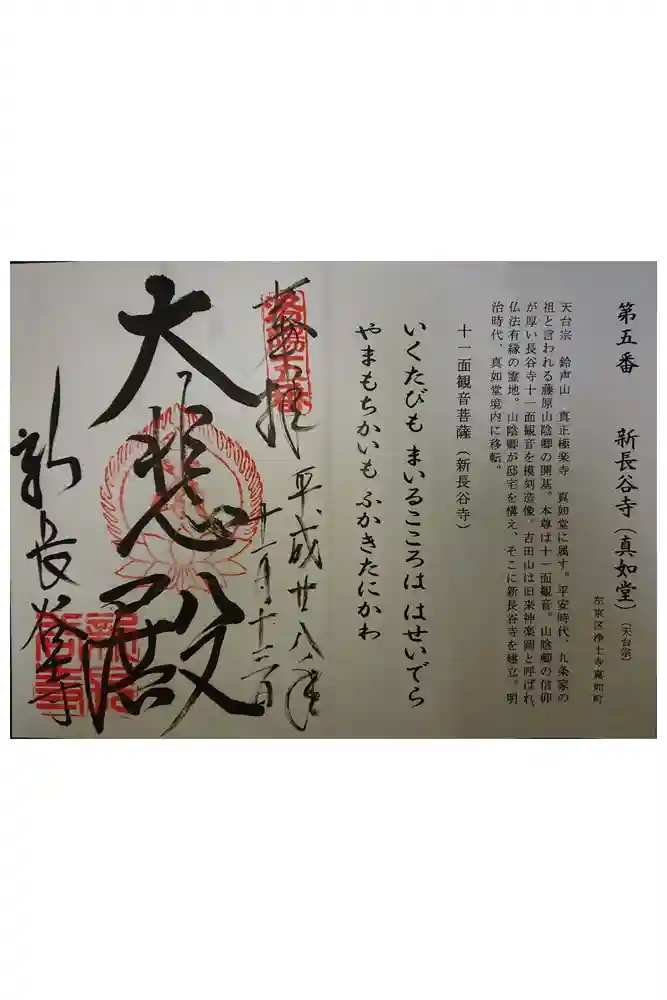 第五番　新長谷寺（真如堂）（天台宗）
左京区浄土寺真如町
天台宗　鈴声山　真正極楽寺　真如堂に属す。平安時代、九条家の
祖と言われる藤原山陰卿の開基。本尊は十一面観音。山陰卿の信仰
が厚い長谷寺十一面観音を模刻造像。吉田山は旧来神楽岡と呼ばれ、
仏法有縁の霊地。山陰卿が邸宅を構え、そこに新長谷寺を建立。明
治時代、真如堂境内に移転。
十一面観音菩薩（新長谷寺）
いくたびも　まいるこころは　はせいでら
やまもちかいも　ふかきたにかわ
奉拝　平成廿八年
十一月十三日
大悲殿
新長谷寺